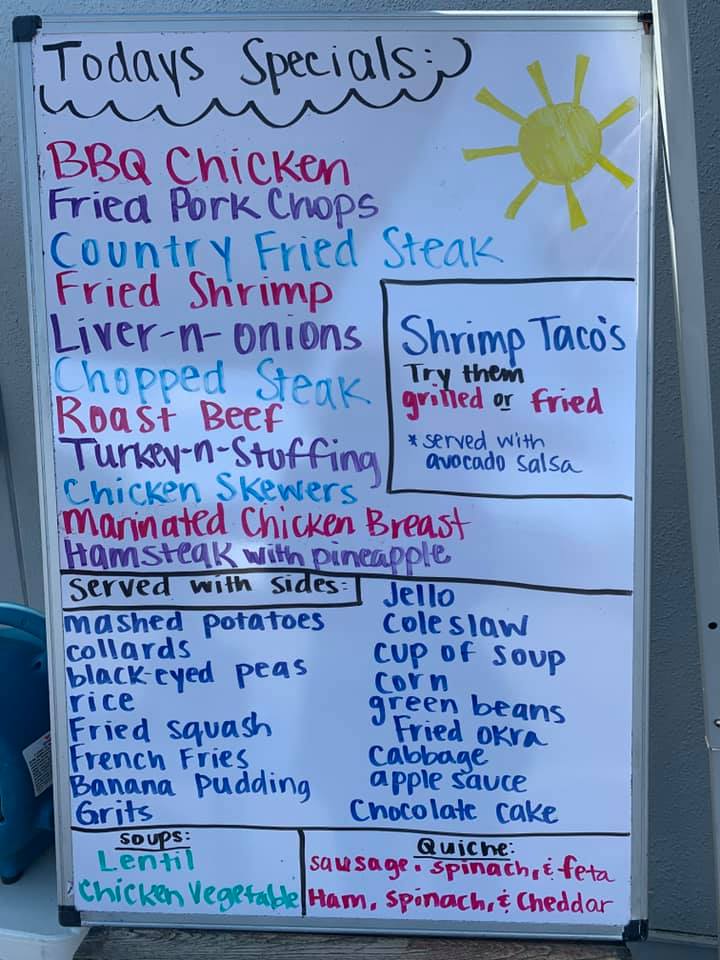 Todays Specials:
BBQ Chicken
Fried Pork Chops
Country Fried Steak
Fried Shrimp
Liver-n-onions
Chopped Steak
Roast Beef
Turkey-n-Stuffing
Chicken Skewers
Marinated Chicken Breast
Hamsteak with pineapple
Shrimp Taco's
Try them
grilled or fried
* served with
avocado salsa
Served with sides:
mashed potatoes
collards
black-eyed peas
rice
Fried squash
French Fries
Banana Pudding
Grits
Jello
Coleslaw
cup of soup
corn
green beans
Fried okra
Cabbage
apple sauce
Chocolate Cake
soups:
Lentil
Chicken Vegetable
Quiche:
sausage, spinach, & feta
Ham, Spinach, & Cheddar